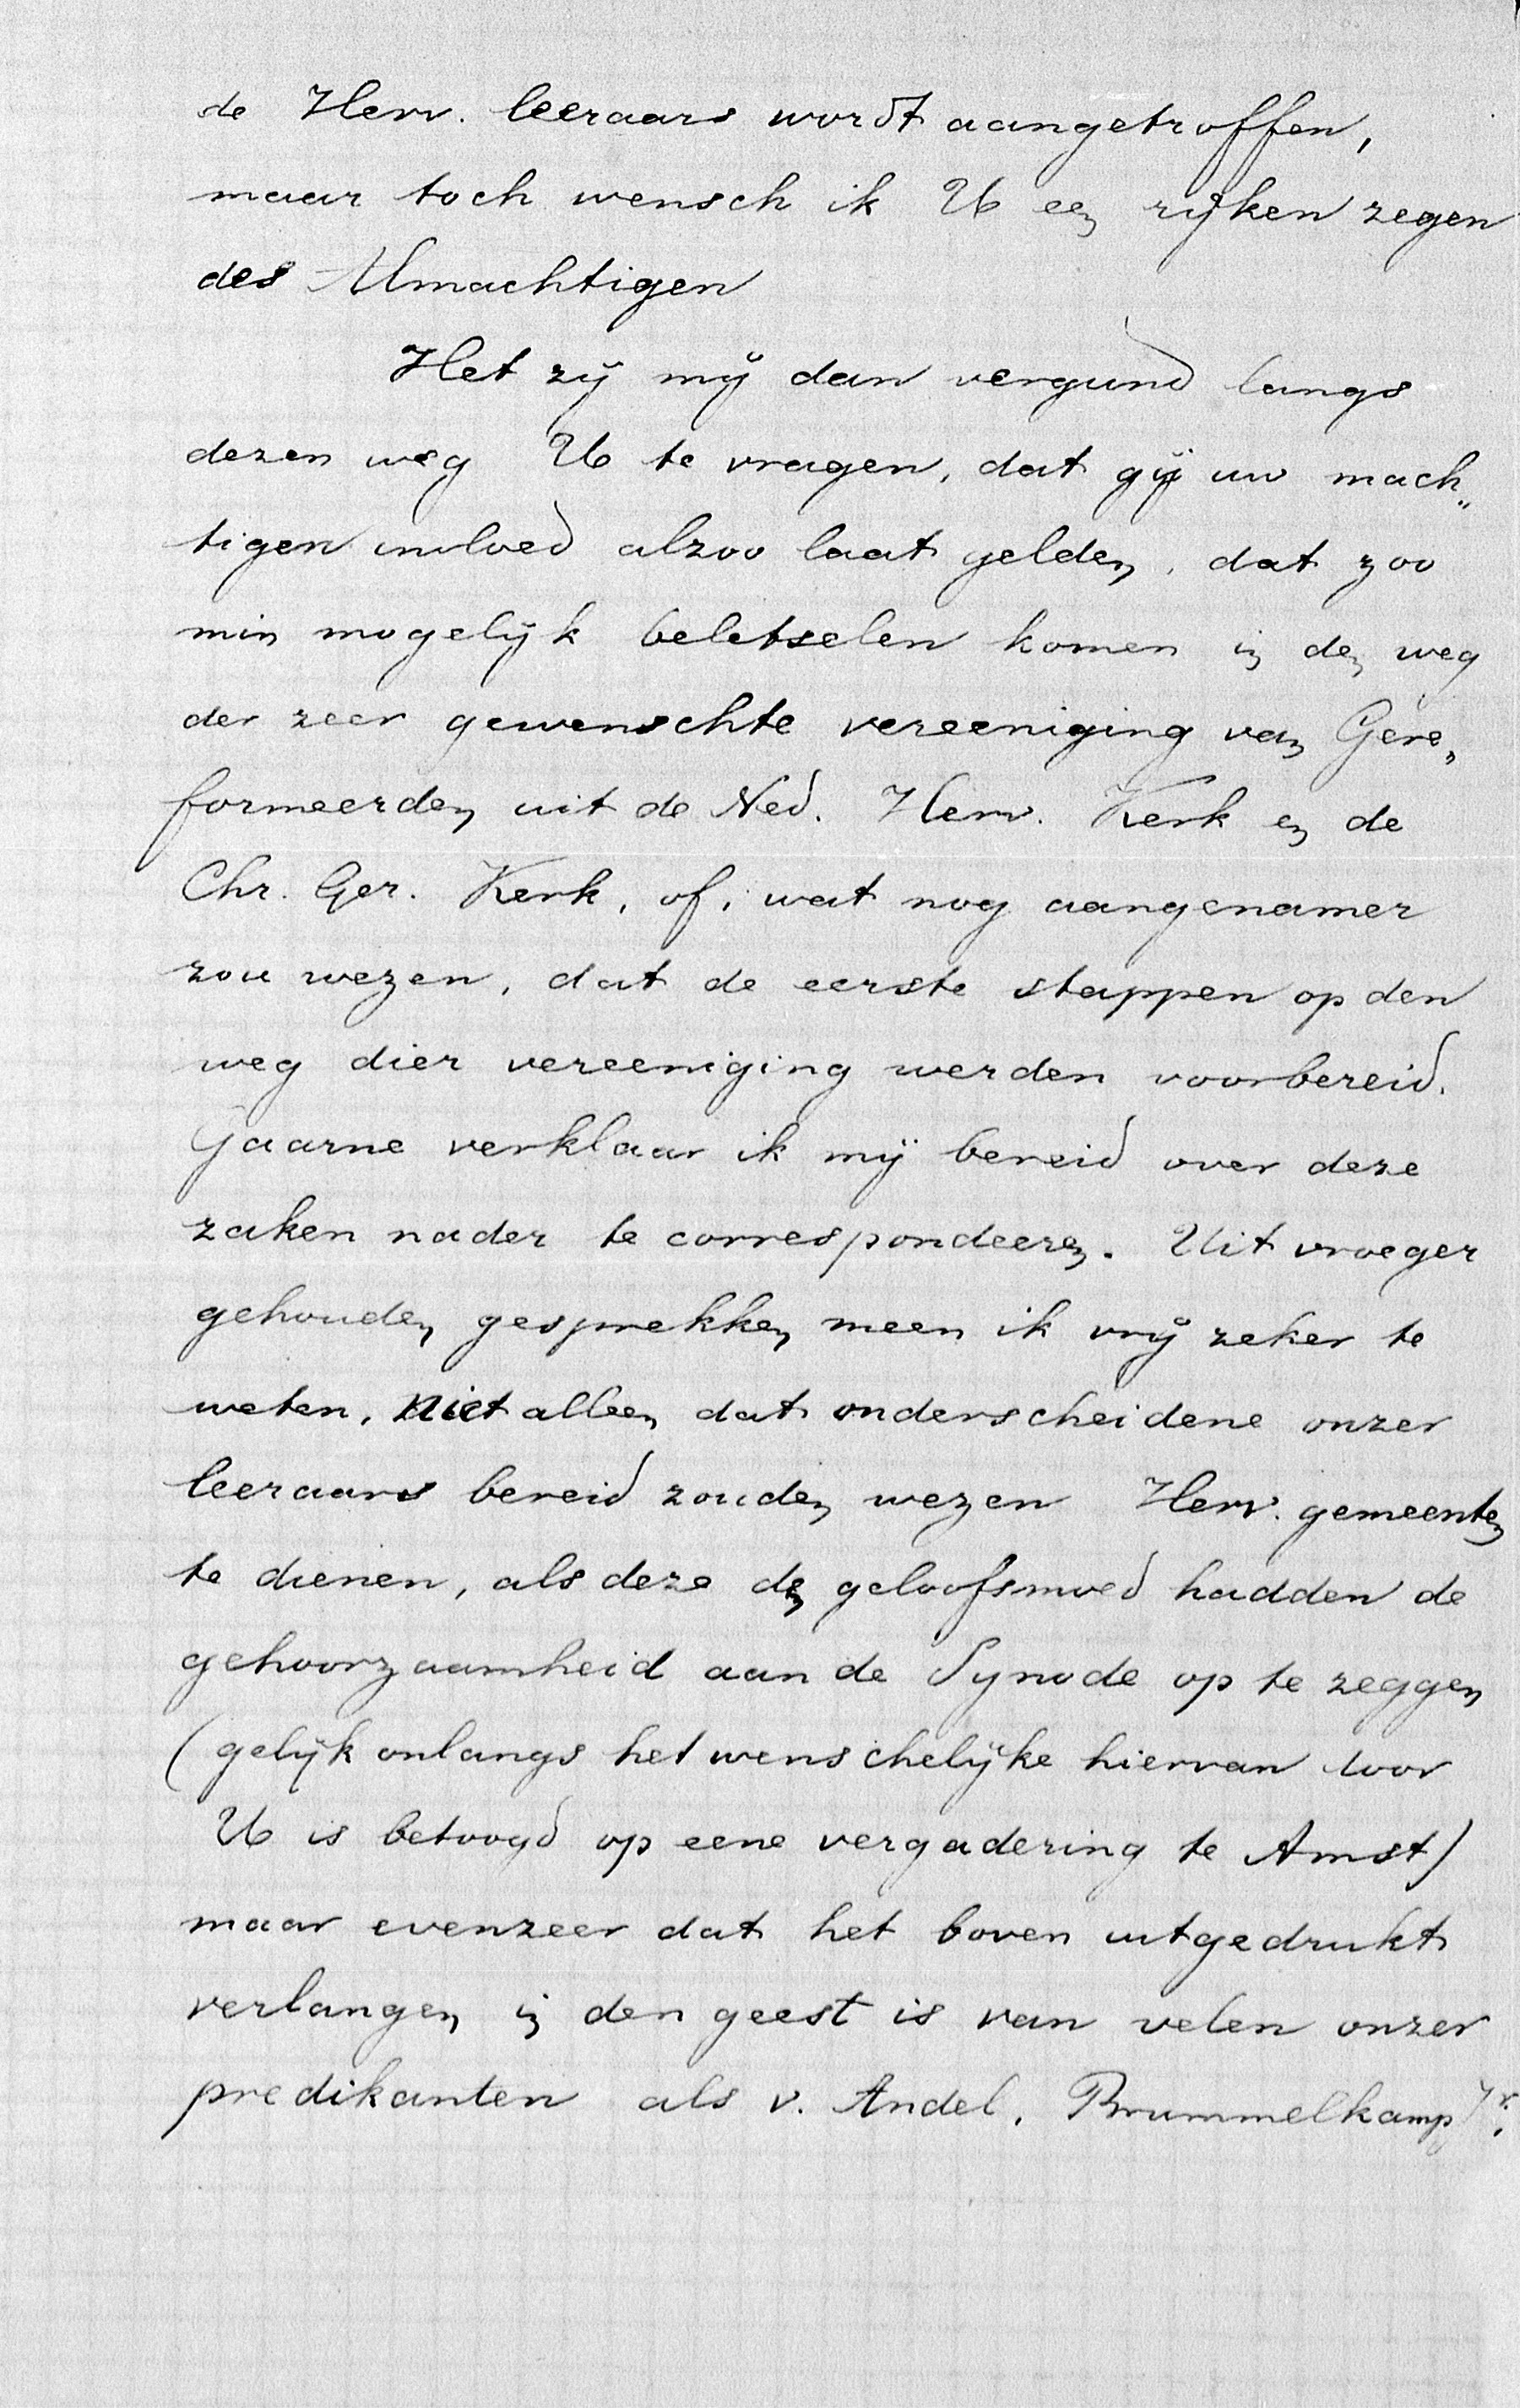 de Herv. leeraars wordt aangetroffen,
maar toch wensch ik U een rijken zegen
des Almachtigen
Het zij mij dan vergund langs
dezen weg U te vragen, dat gij uw mach„
tigen invloed alzoo laat gelden, dat zoo
min mogelijk beletselen komen in den weg
der zeer gewenschte vereeniging van Gere„
formeerden uit de Ned. Herv. Kerk en de
Chr. Ger. Kerk, of, wat nog aangenamer
zou wezen, dat de eerste stappen op den
weg dier vereeniging werden voorbereid.
Gaarne verklaar ik mij bereid over deze
zaken nader te correspondeeren. Uit vroeger
gehouden gesprekken meen ik vrij zeker te
weten, niet alleen dat onderscheidene onzer
leeraars bereid zouden wezen Herv. gemeenten
te dienen, als deze den geloofsmoed hadden de
gehoorzaamheid aan de Synode op te zeggen
(gelijk onlangs het wenschelijke hiervan door
U is betoogd op eene vergadering te Amst)
maar evenzeer dat het boven uitgedrukt
verlangen in den geest is van velen onzer
predikanten als v. Andel, Brummelkamp Jr.